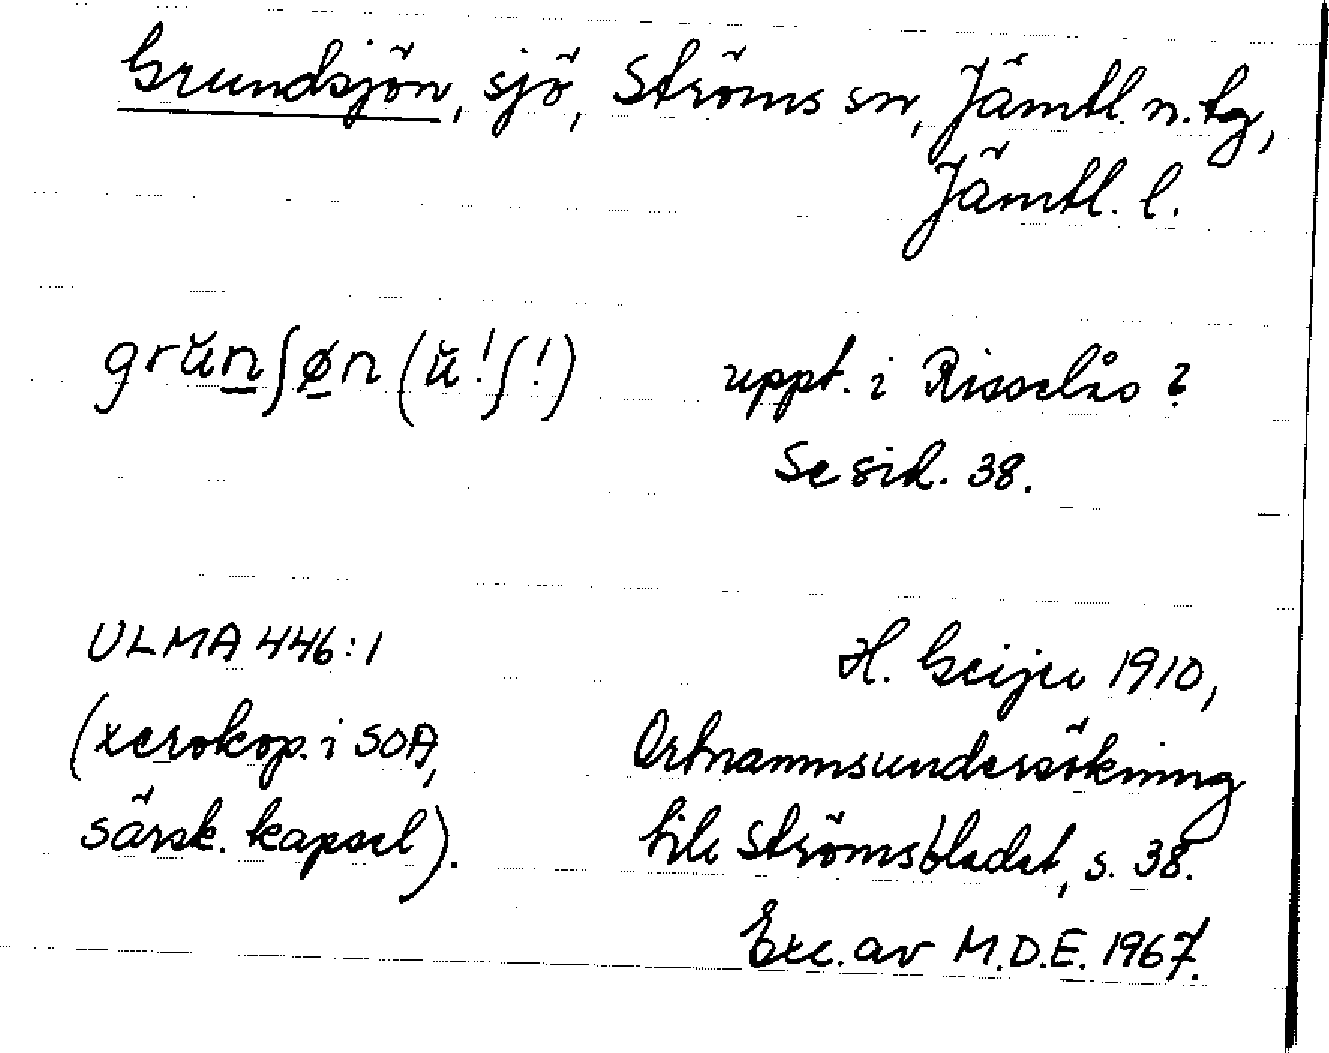 Grundsjön, sjö, Ströms sn, Jämtl. n. tg,
Jämtl. l.
grŭn̲ʃø̲n (ŭ! ʃ!) uppt. i Risselås?
Se sid. 38.
ULMA 446:1 H. Geijer 1910,
(xerokop. i SOA, Ortnamnsundersökning
särsk. kapsel). till Strömsbladet, s. 38.
Exc. av M.D.E. 1967.